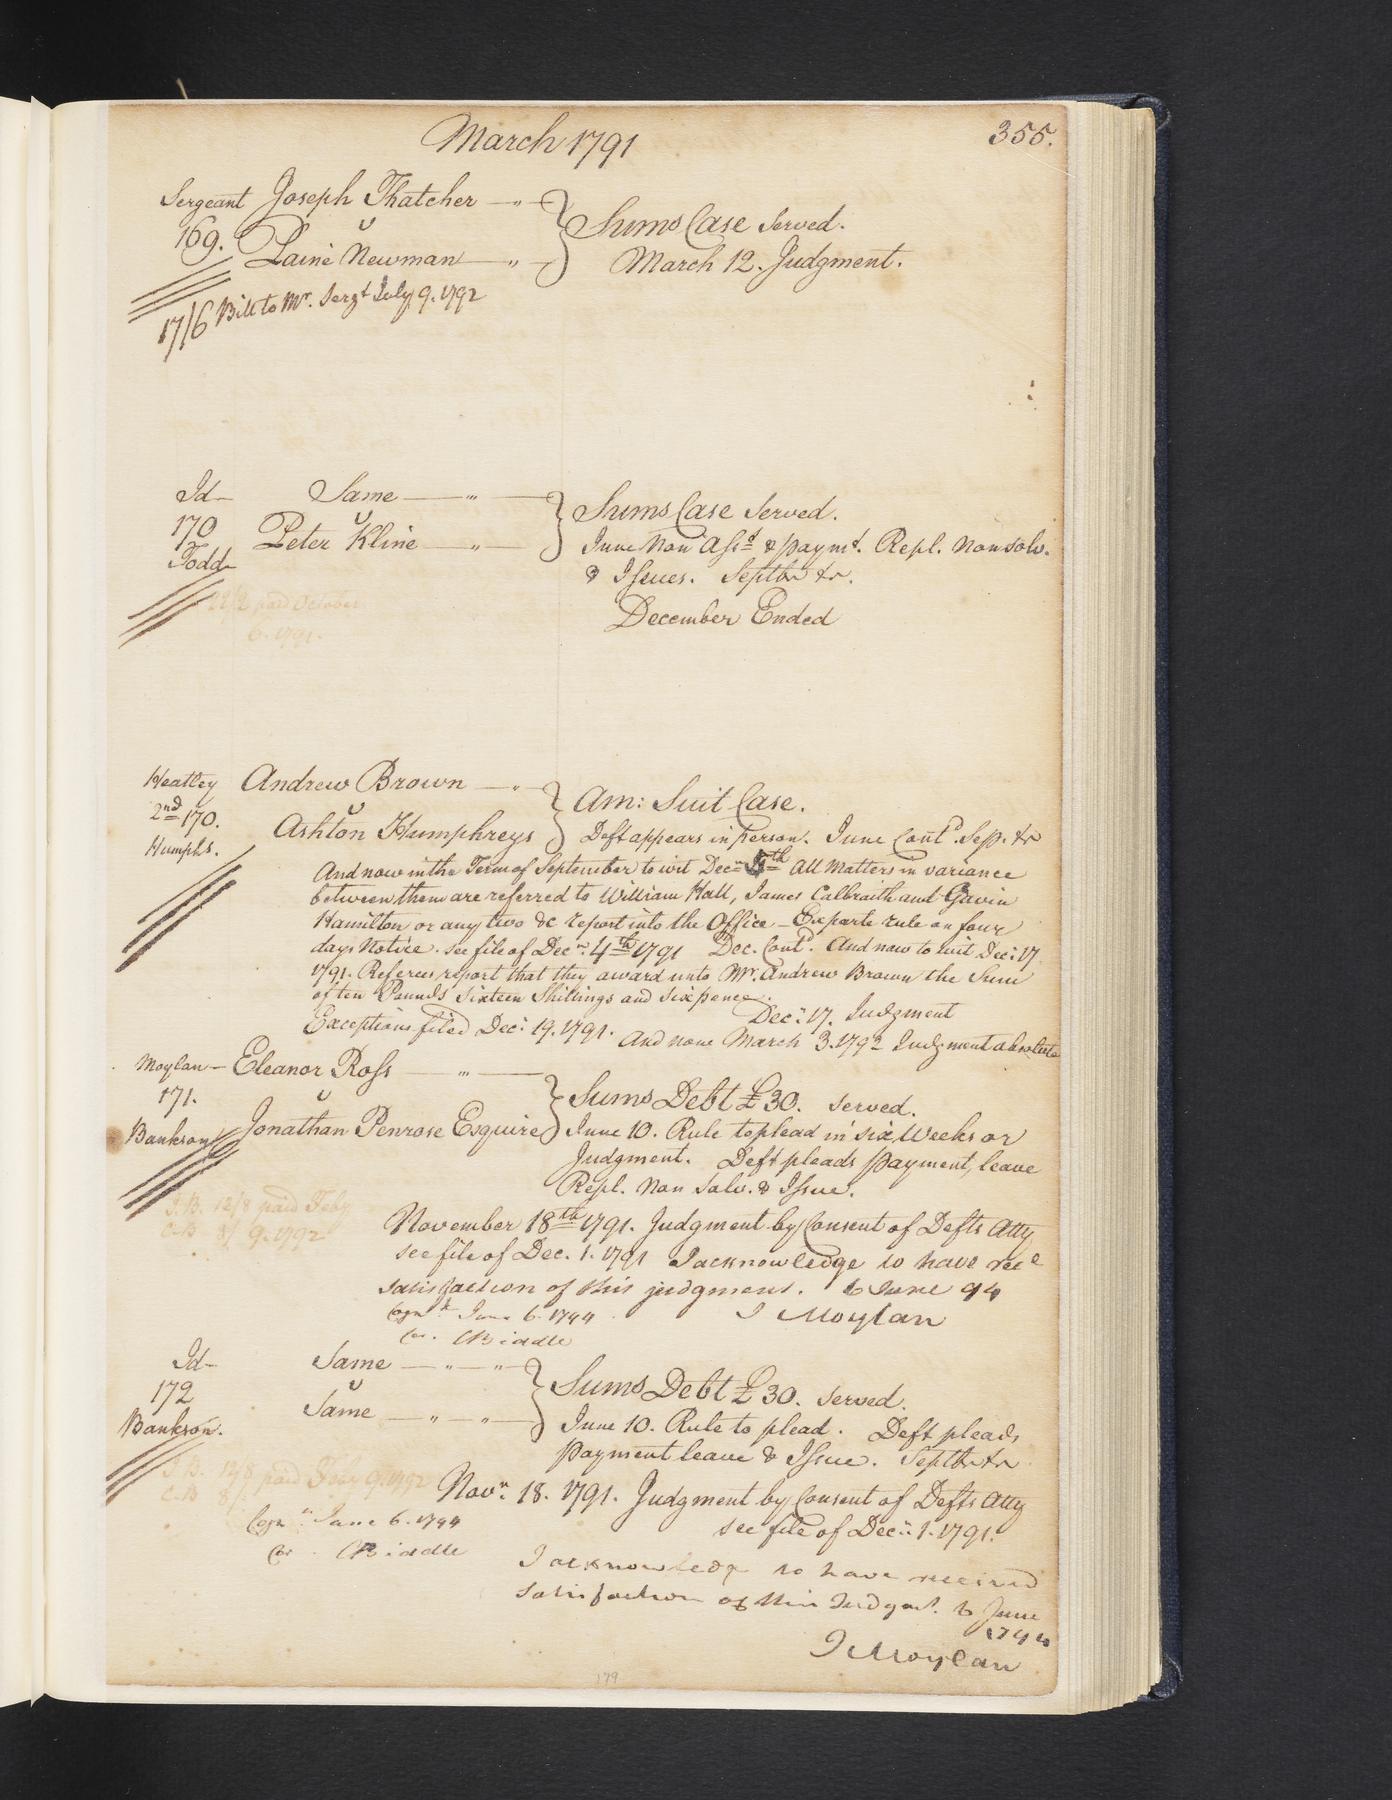 March 1791
355.
Sergeant Joseph Thatcher — " —
169. v
Paine Newman — " —
Sums Case Served.
March 12. Judgment.
17/6 Bill to Mr. Sergt July 9. 1792
Id— Same — " —
170 v
Peter Kline — " —
Todd—
Sums Case Served.
June Non Asst & paymt. Repl. Non solv.
& Issues. Septbr &r.
December Ended
22/2 paid October
6. 1791.
Heatley Andrew Brown — " —
2nd 170. v
Ashton Humphreys
Humphs.
Am: Suit Case.
Deft appears in person. June Contd. Sep. &r
And now in the Term of September to wit Decr 5th All Matters in variance
between them are referred to William Hall, James Calbraith and Gavin
Hamilton or any two &c report into the Office — Exparte rule on four
days Notice. see file of Decr. 4th 1791 Dec. Contd. And now to wit Dec: 17
1791. Referees report that they award unto Mr. Andrew Brown the Sum
of ten Pounds Sixteen Shillings and sixpence.
Dec: 17. Judgment
Exceptions filed Dec: 19. 1791. And now March 3. 1792 Judgment absolute
Moylan— Eleanor Ross — " —
171. v
Bankson Jonathan Penrose Esquire
Sums Debt £30. served.
June 10. Rule to plead in six Weeks or
Judgment. Deft pleads Payment, leave
Repl. Non Solv. & Issue.
J.B. 12/8 paid Feby
C.B 8/ 9. 1792
November 18th 1791. Judgment by Consent of Defts Atty
see file of Dec. 1. 1791 I acknowledge to have recd
satisfaction of this judgment. 6 June 94
Cogn t. June 6. 1794 J Moylan
Cor. C Biddle
Id— Same — " — " —
172 v
Same — " — " —
Bankson.
Sums Debt £30. served.
June 10. Rule to plead. Deft pleads
payment leave & Issue. Septbr &r
J.B. 12/8 paid Feby 9. 1792
C.B 8/
Novr. 18. 1791. Judgment by Consent of Defts Atty
see file of Dec: 1. 1791.
Cogn t. June 6. 1794
Cor. C Biddle
I acknowledge to have received
satisfaction of this Judgmt. 6 June
1794
J Moylan
179